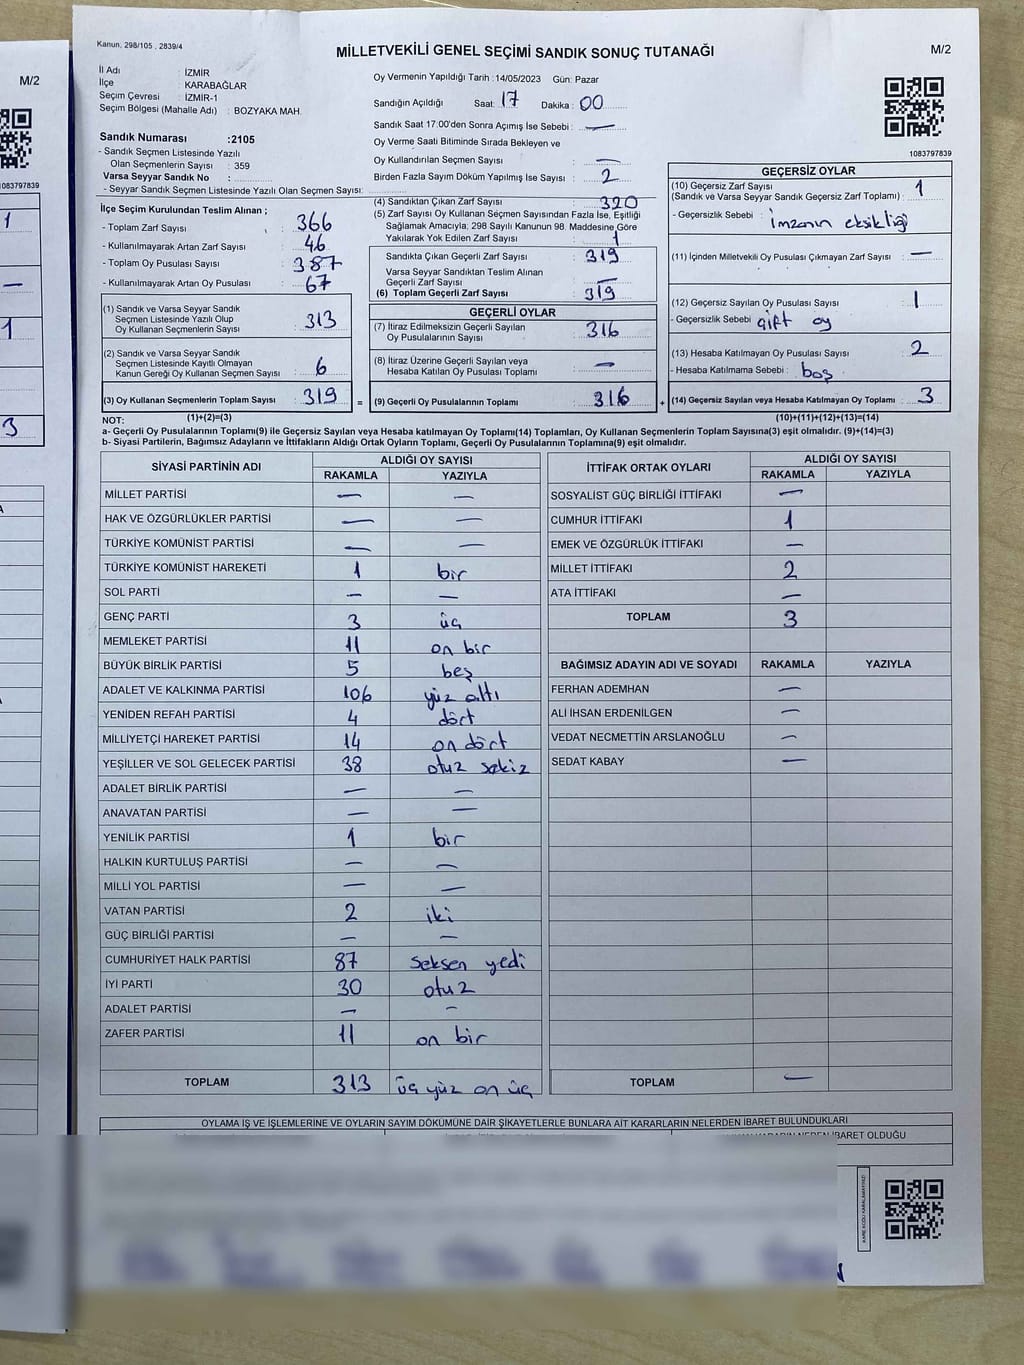 Kanun, 298/105 , 2839/4
MİLLETVEKİLİ GENEL SEÇİMİ SANDIK SONUÇ TUTANAĞI
M/2
M/2
İl Adı : İZMİR
İlçe : KARABAĞLAR
Seçim Çevresi : İZMİR-1
Seçim Bölgesi (Mahalle Adı) : BOZYAKA MAH.
Sandık Numarası :2105
- Sandık Seçmen Listesinde Yazılı
Olan Seçmenlerin Sayısı : 359
Varsa Seyyar Sandık No :
- Seyyar Sandık Seçmen Listesinde Yazılı Olan Seçmen Sayısı:
Oy Vermenin Yapıldığı Tarih :14/05/2023 Gün: Pazar
Sandığın Açıldığı Saat: 17 Dakika : 00
Sandık Saat 17:00'den Sonra Açımış İse Sebebi : —
Oy Verme Saati Bitiminde Sırada Bekleyen ve
Oy Kullandırılan Seçmen Sayısı : —
Birden Fazla Sayım Döküm Yapılmış İse Sayısı : 2
1083797839
1083797839
İlçe Seçim Kurulundan Teslim Alınan ;
- Toplam Zarf Sayısı : 366
- Kullanılmayarak Artan Zarf Sayısı : 46
- Toplam Oy Pusulası Sayısı : 387
- Kullanılmayarak Artan Oy Pusulası : 67
(1) Sandık ve Varsa Seyyar Sandık
Seçmen Listesinde Yazılı Olup
Oy Kullanan Seçmenlerin Sayısı : 313
(2) Sandık ve Varsa Seyyar Sandık
Seçmen Listesinde Kayıtlı Olmayan
Kanun Gereği Oy Kullanan Seçmen Sayısı : 6
(3) Oy Kullanan Seçmenlerin Toplam Sayısı : 319 =
(4) Sandıktan Çıkan Zarf Sayısı : 320
(5) Zarf Sayısı Oy Kullanan Seçmen Sayısından Fazla İse, Eşitliği
Sağlamak Amacıyla, 298 Sayılı Kanunun 98. Maddesine Göre
Yakılarak Yok Edilen Zarf Sayısı : 1
Sandıkta Çıkan Geçerli Zarf Sayısı : 319
Varsa Seyyar Sandıktan Teslim Alınan
Geçerli Zarf Sayısı : —
(6) Toplam Geçerli Zarf Sayısı : 319
GEÇERLİ OYLAR
(7) İtiraz Edilmeksizin Geçerli Sayılan
Oy Pusulalarının Sayısı : 316
(8) İtiraz Üzerine Geçerli Sayılan veya
Hesaba Katılan Oy Pusulası Toplamı : —
(9) Geçerli Oy Pusulalarının Toplamı : 316 +
GEÇERSİZ OYLAR
(10) Geçersiz Zarf Sayısı
(Sandık ve Varsa Seyyar Sandık Geçersiz Zarf Toplamı) : 1
- Geçersizlik Sebebi : imzanın eksikliği
(11) İçinden Milletvekili Oy Pusulası Çıkmayan Zarf Sayısı : —
(12) Geçersiz Sayılan Oy Pusulası Sayısı : 1
- Geçersizlik Sebebi : çift oy
(13) Hesaba Katılmayan Oy Pusulası Sayısı : 2
- Hesaba Katılmama Sebebi : boş
(14) Geçersiz Sayılan veya Hesaba Katılmayan Oy Toplamı : 3
NOT: (1)+(2)=(3) (10)+(11)+(12)+(13)=(14)
a- Geçerli Oy Pusulalarının Toplamı(9) ile Geçersiz Sayılan veya Hesaba katılmayan Oy Toplamı(14) Toplamları, Oy Kullanan Seçmenlerin Toplam Sayısına(3) eşit olmalıdır. (9)+(14)=(3)
b- Siyasi Partilerin, Bağımsız Adayların ve İttifakların Aldığı Ortak Oyların Toplamı, Geçerli Oy Pusulalarının Toplamına(9) eşit olmalıdır.
SİYASİ PARTİNİN ADI ALDIĞI OY SAYISI
RAKAMLA YAZIYLA
MİLLET PARTİSİ — —
HAK VE ÖZGÜRLÜKLER PARTİSİ — —
TÜRKİYE KOMÜNİST PARTİSİ — —
TÜRKİYE KOMÜNİST HAREKETİ 1 bir
SOL PARTİ — —
GENÇ PARTİ 3 üç
MEMLEKET PARTİSİ 11 on bir
BÜYÜK BİRLİK PARTİSİ 5 beş
ADALET VE KALKINMA PARTİSİ 106 yüz altı
YENİDEN REFAH PARTİSİ 4 dört
MİLLİYETÇİ HAREKET PARTİSİ 14 on dört
YEŞİLLER VE SOL GELECEK PARTİSİ 38 otuz sekiz
ADALET BİRLİK PARTİSİ — —
ANAVATAN PARTİSİ — —
YENİLİK PARTİSİ 1 bir
HALKIN KURTULUŞ PARTİSİ — —
MİLLİ YOL PARTİSİ — —
VATAN PARTİSİ 2 iki
GÜÇ BİRLİĞİ PARTİSİ — —
CUMHURİYET HALK PARTİSİ 87 seksen yedi
İYİ PARTİ 30 otuz
ADALET PARTİSİ — —
ZAFER PARTİSİ 11 on bir
TOPLAM 313 üç yüz on üç
İTTİFAK ORTAK OYLARI ALDIĞI OY SAYISI
RAKAMLA YAZIYLA
SOSYALİST GÜÇ BİRLİĞİ İTTİFAKI —
CUMHUR İTTİFAKI 1
EMEK VE ÖZGÜRLÜK İTTİFAKI —
MİLLET İTTİFAKI 2
ATA İTTİFAKI —
TOPLAM 3
BAĞIMSIZ ADAYIN ADI VE SOYADI RAKAMLA YAZIYLA
FERHAN ADEMHAN —
ALİ İHSAN ERDENİLGEN —
VEDAT NECMETTİN ARSLANOĞLU —
SEDAT KABAY —
TOPLAM —
OYLAMA İŞ VE İŞLEMLERİNE VE OYLARIN SAYIM DÖKÜMÜNE DAİR ŞİKAYETLERLE BUNLARA AİT KARARLARIN NELERDEN İBARET BULUNDUKLARI
İBARET OLDUĞU
KARE KODU KARALAMAYINIZ!
1
—
1
3